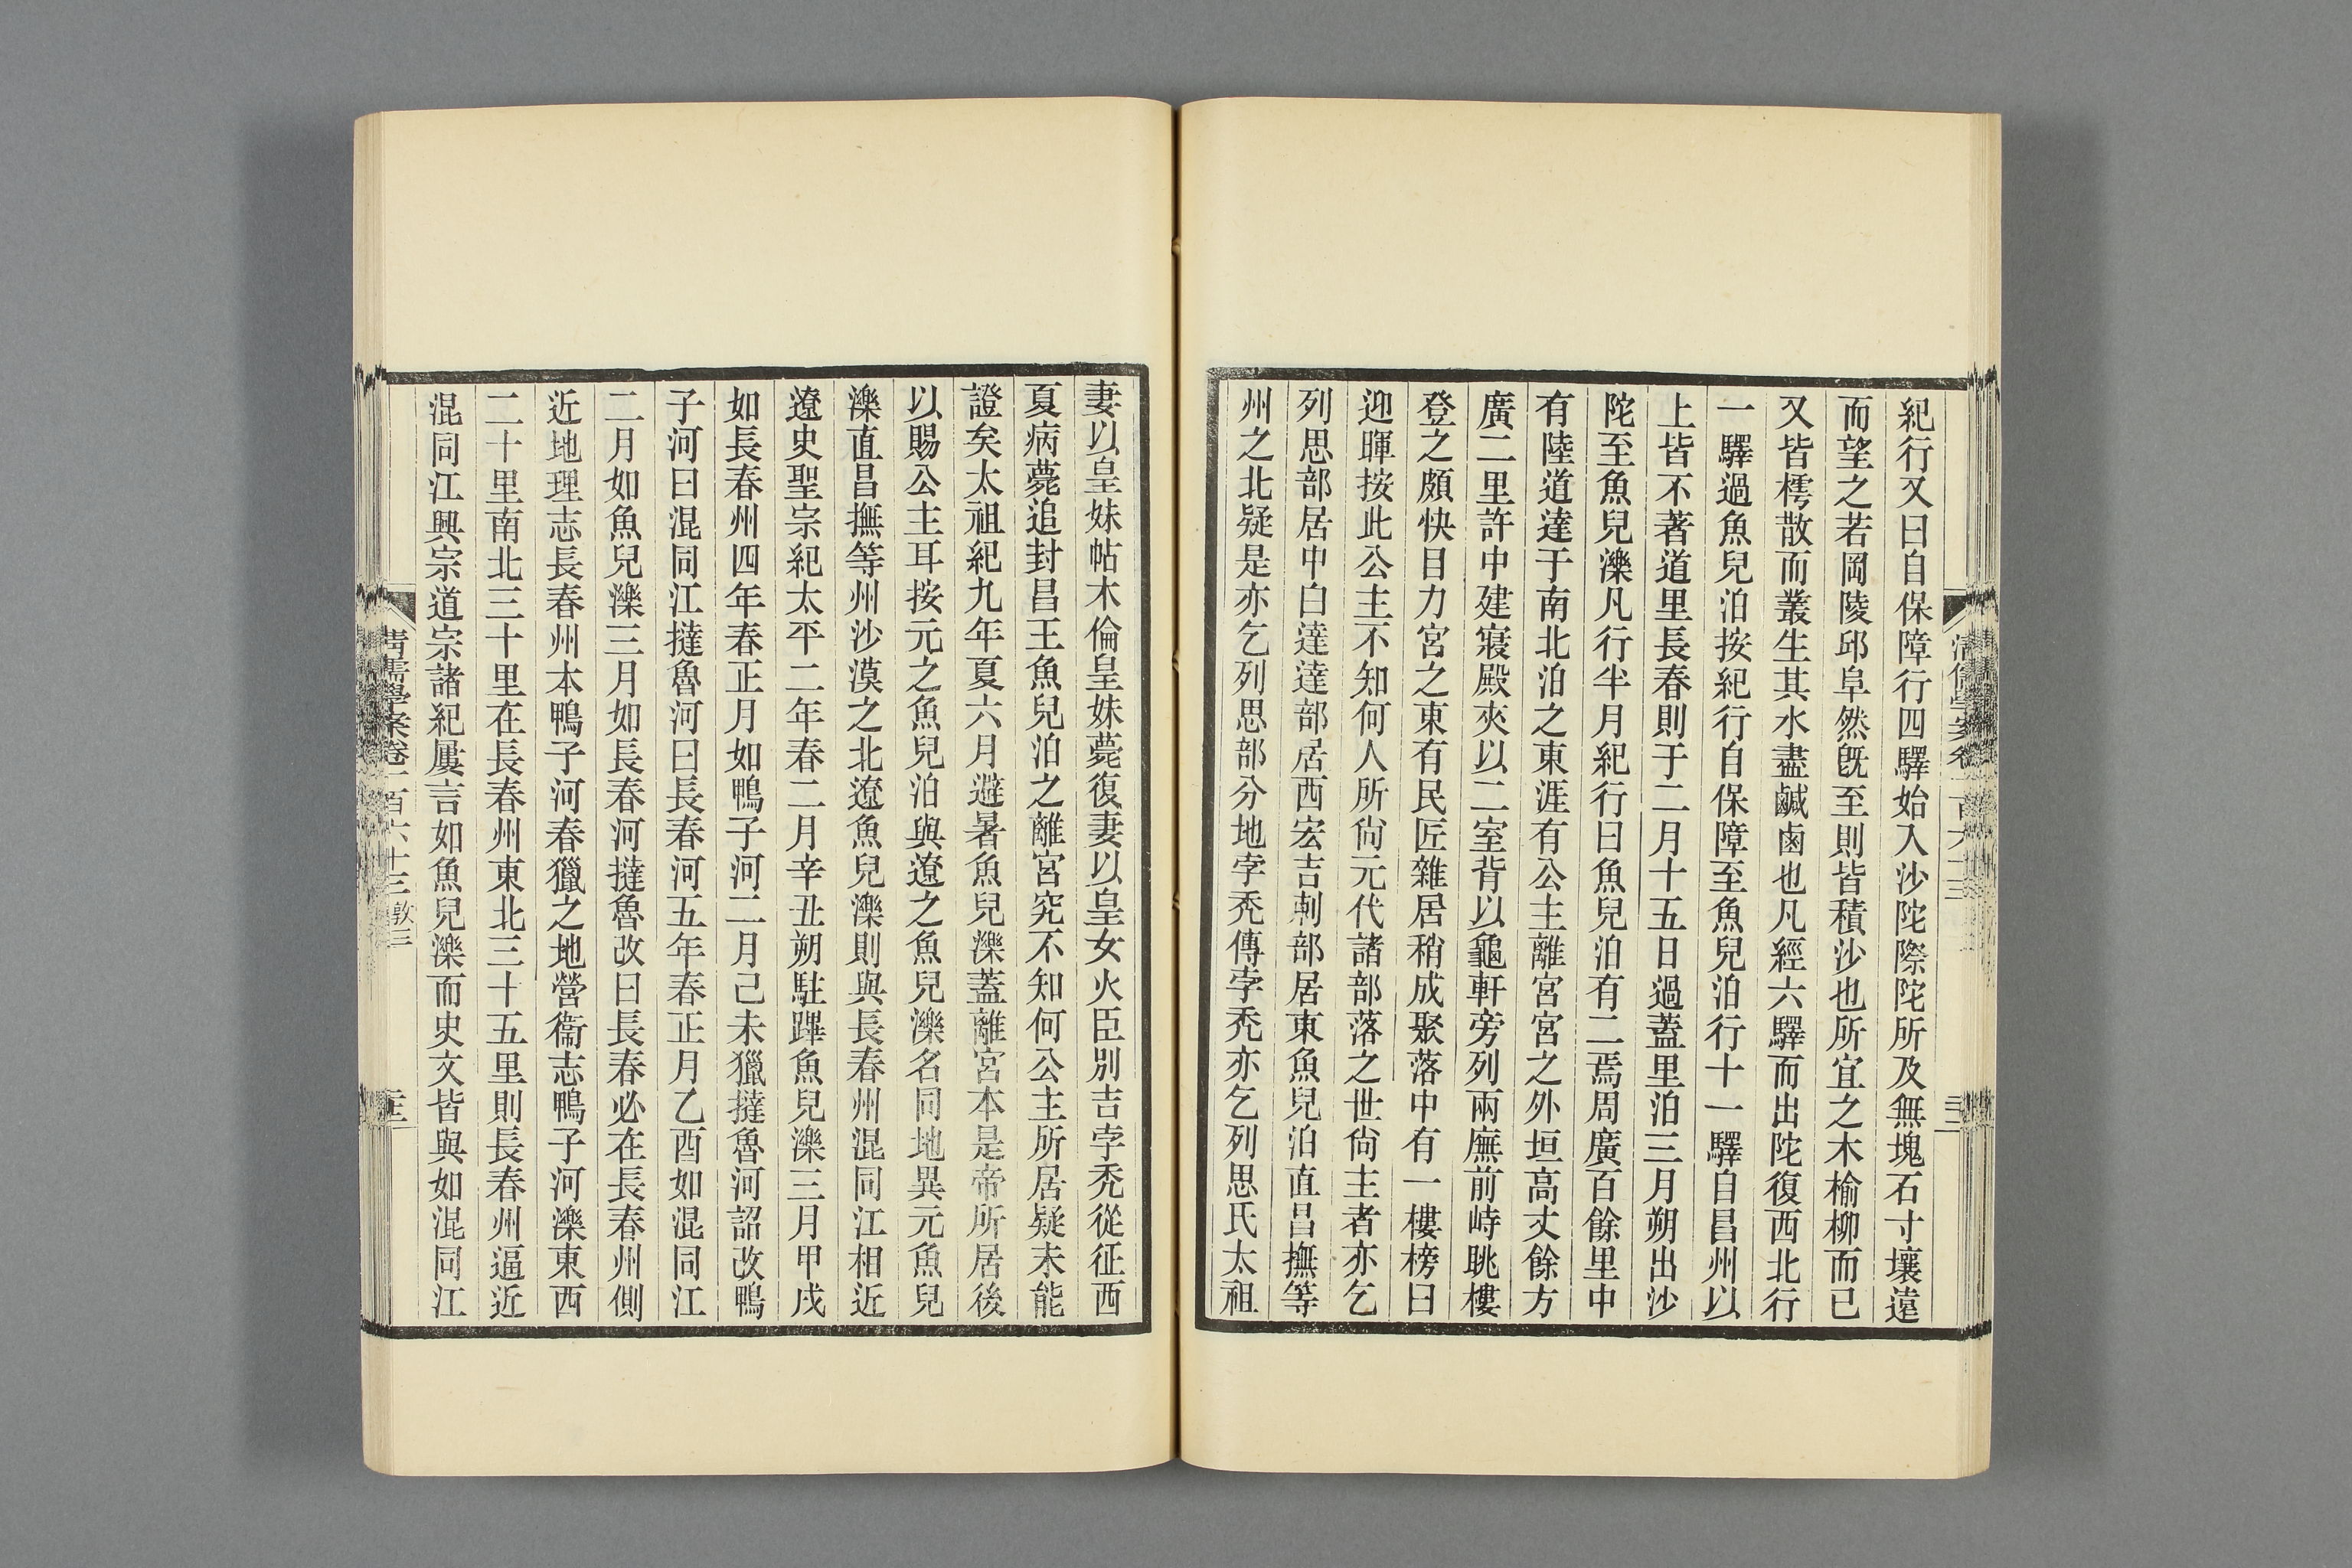 紀行又曰自保障行四驛始入沙陀際陀所及無塊石寸壤遠
而望之若岡陵邱阜然旣至則皆積沙也所宜之木榆柳而已
又皆樗散而叢生其水盡鹹鹵也凡經六驛而出陀復西北行
一驛過魚兒泊按紀行自保障至魚兒泊行十一驛自昌州以
上皆不著道里長春則于二月十五日過蓋里泊三月朔出沙
陀至魚兒濼凡行半月紀行曰魚兒泊有二焉周廣百餘里中
有陸道達于南北泊之東涯有公主離宮宮之外垣高丈餘方
廣二里許中建寢殿夾以二室背以龜軒旁列兩廡前峙眺樓
登之頗快目力宮之東有民匠雜居稍成聚落中有一樓榜曰
迎暉按此公主不知何人所尙元代諸部落之世尙主者亦乞
列思部居中白達達部居西宏吉剌部居東魚兒泊直昌撫等
州之北疑是亦乞列思部分地孛禿傳孛禿亦乞列思氏太祖
妻以皇妹帖木倫皇妹薨復妻以皇女火臣別吉孛禿從征西
夏病薨追封昌王魚兒泊之離宮究不知何公主所居疑未能
證矣太祖紀九年夏六月避暑魚兒濼蓋離宮本是帝所居後
以賜公主耳按元之魚兒泊與遼之魚兒濼名同地異元魚兒
濼直昌撫等州沙漠之北遼魚兒濼則與長春州混同江相近
遼史聖宗紀太平二年春二月辛丑朔駐蹕魚兒濼三月甲戌
如長春州四年春正月如鴨子河二月己未獵撻魯河詔改鴨
子河曰混同江撻魯河曰長春河五年春正月乙酉如混同江
二月如魚兒濼三月如長春河撻魯改曰長春必在長春州側
近地理志長春州本鴨子河春獵之地營衞志鴨子河濼東西
二十里南北三十里在長春州東北三十五里則長春州逼近
混同江興宗道宗諸紀屢言如魚兒濼而史文皆與如混同江
清儒學案卷一百六十三 敦三